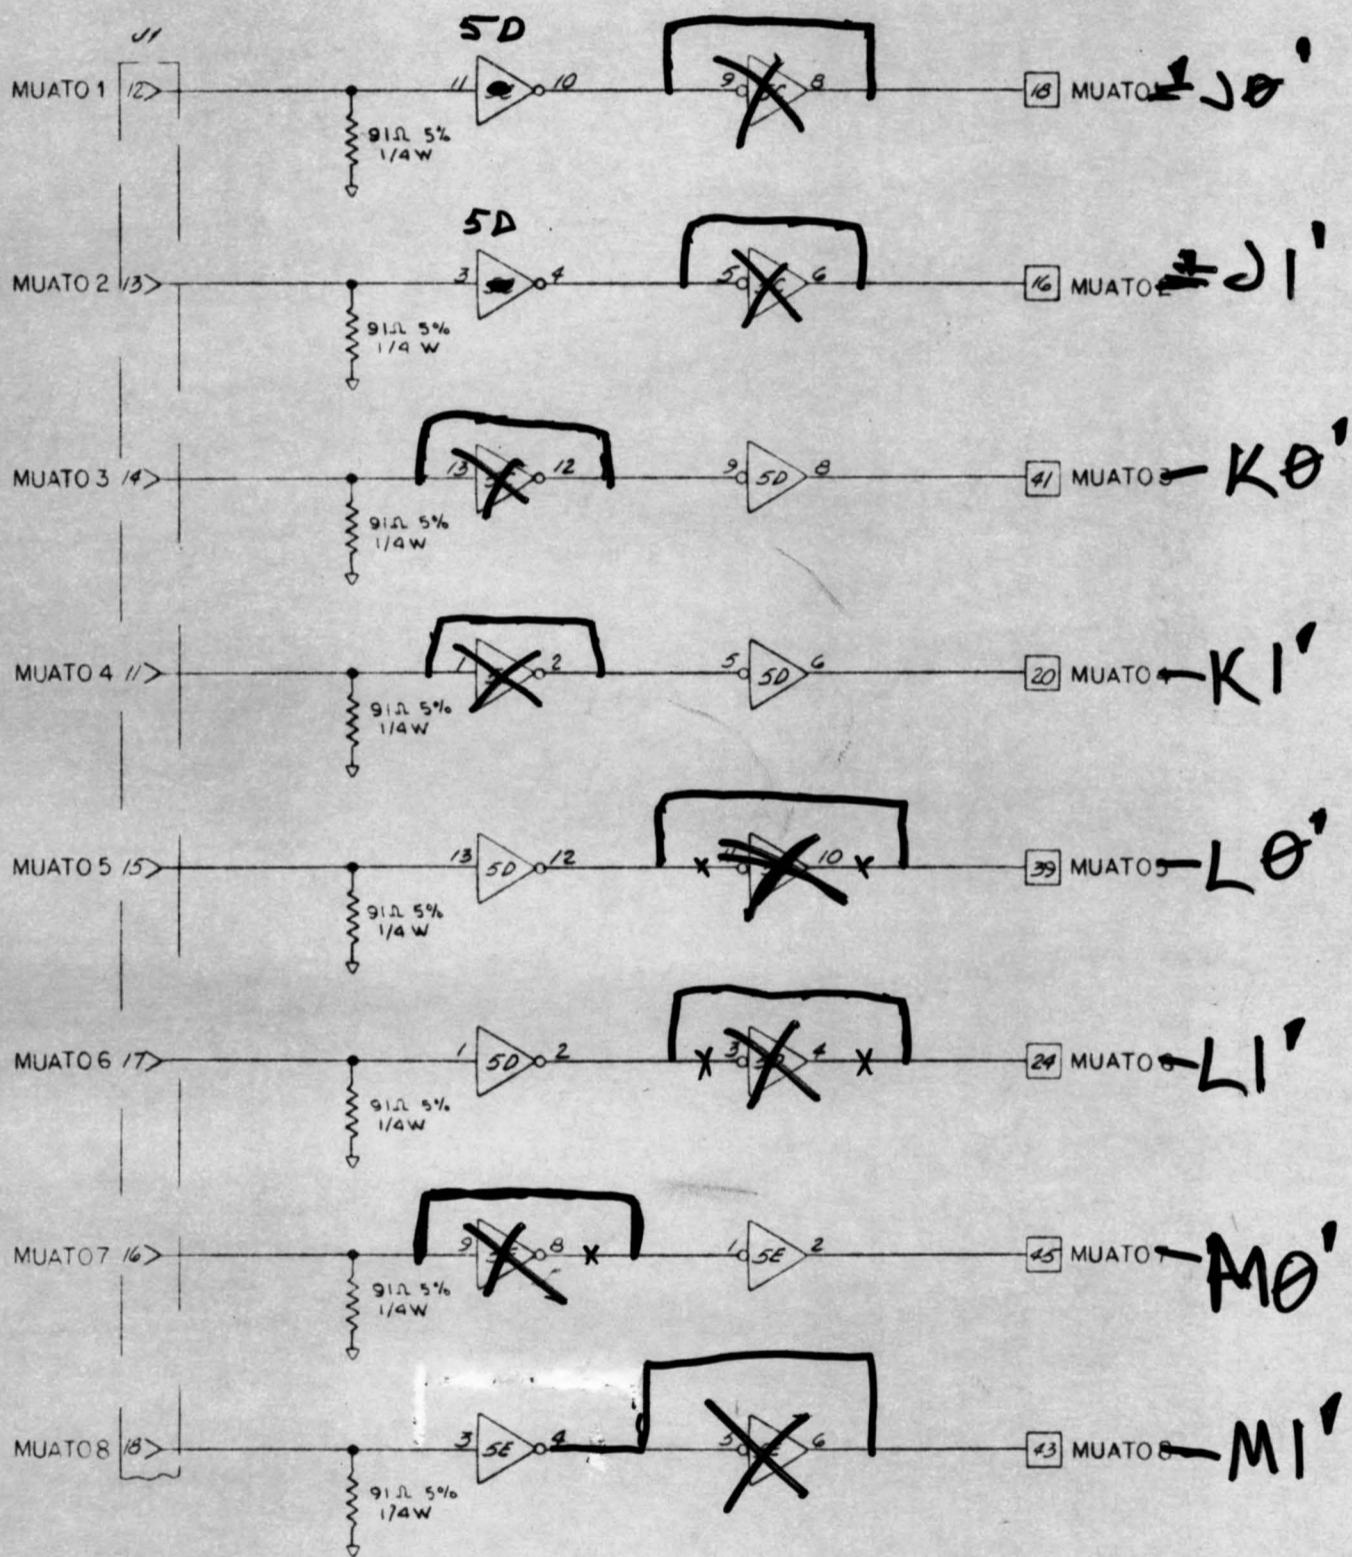 J1
5D
MUATO 1 12 11 10 9 8 18 MUATO 1 J0'
91Ω 5%
1/4 W
5D
MUATO 2 13 3 4 5 6 16 MUATO J1'
91Ω 5%
1/4 W
MUATO 3 14 13 12 9 5D 8 41 MUATO 3 K0'
91Ω 5%
1/4 W
MUATO 4 11 1 2 5 5D 6 20 MUATO 4 K1'
91Ω 5%
1/4 W
MUATO 5 15 13 5D 12 x 11 10 x 39 MUATO 5 L0'
91Ω 5%
1/4 W
MUATO 6 17 1 5D 2 x 3 4 x 24 MUATO 6 L1'
91Ω 5%
1/4 W
MUATO 7 16 9 8 x 1 5E 2 45 MUATO 7 M0'
91Ω 5%
1/4 W
MUATO 8 18 3 5E 4 5 6 43 MUATO 8 M1'
91Ω 5%
1/4 W